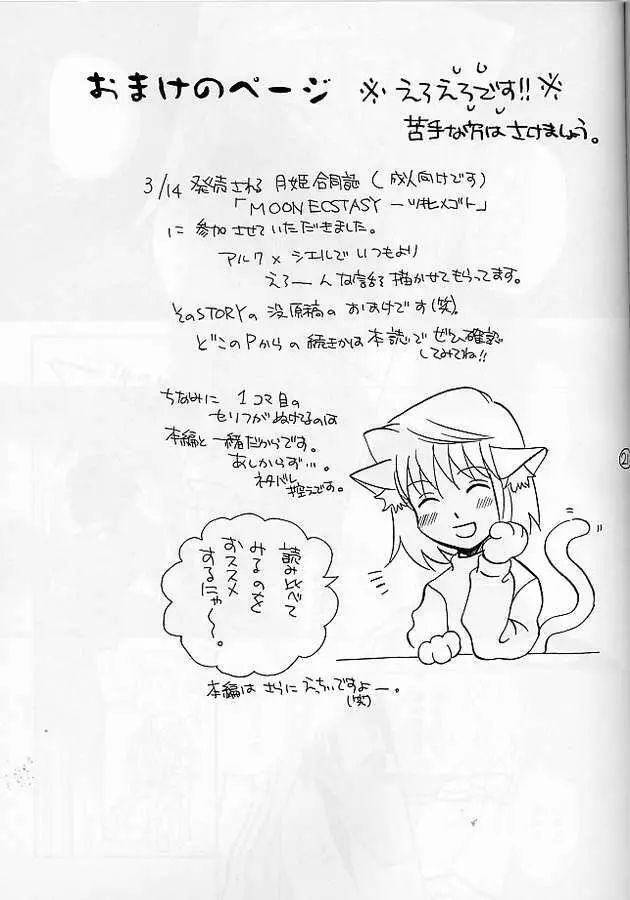 おまけのページ ※えろえろです!!※
苦手な方はさけましょう。
3/14 発売される 月姫合同誌（成人向けです）
「MOON ECSTASY ーツキヒメゴト」
に 参加させていただきました。
アルク×シエルで いつもより
えろーんな話を描かせてもらってます。
そのSTORYの 没原稿の おまけです(笑)。
どこのPからの 続きかは 本読いで ぜひ確認
してみてね!!
ちなみに 1コマ目の
セリフがぬけてるのは
本編と一緒だからです。
あしからず…。
ネタバレ
控えです。
読み比べて
みるのを
おススメ
するにゃ〜〜。
本編は さらに えっちぃですよー。
(笑)
2